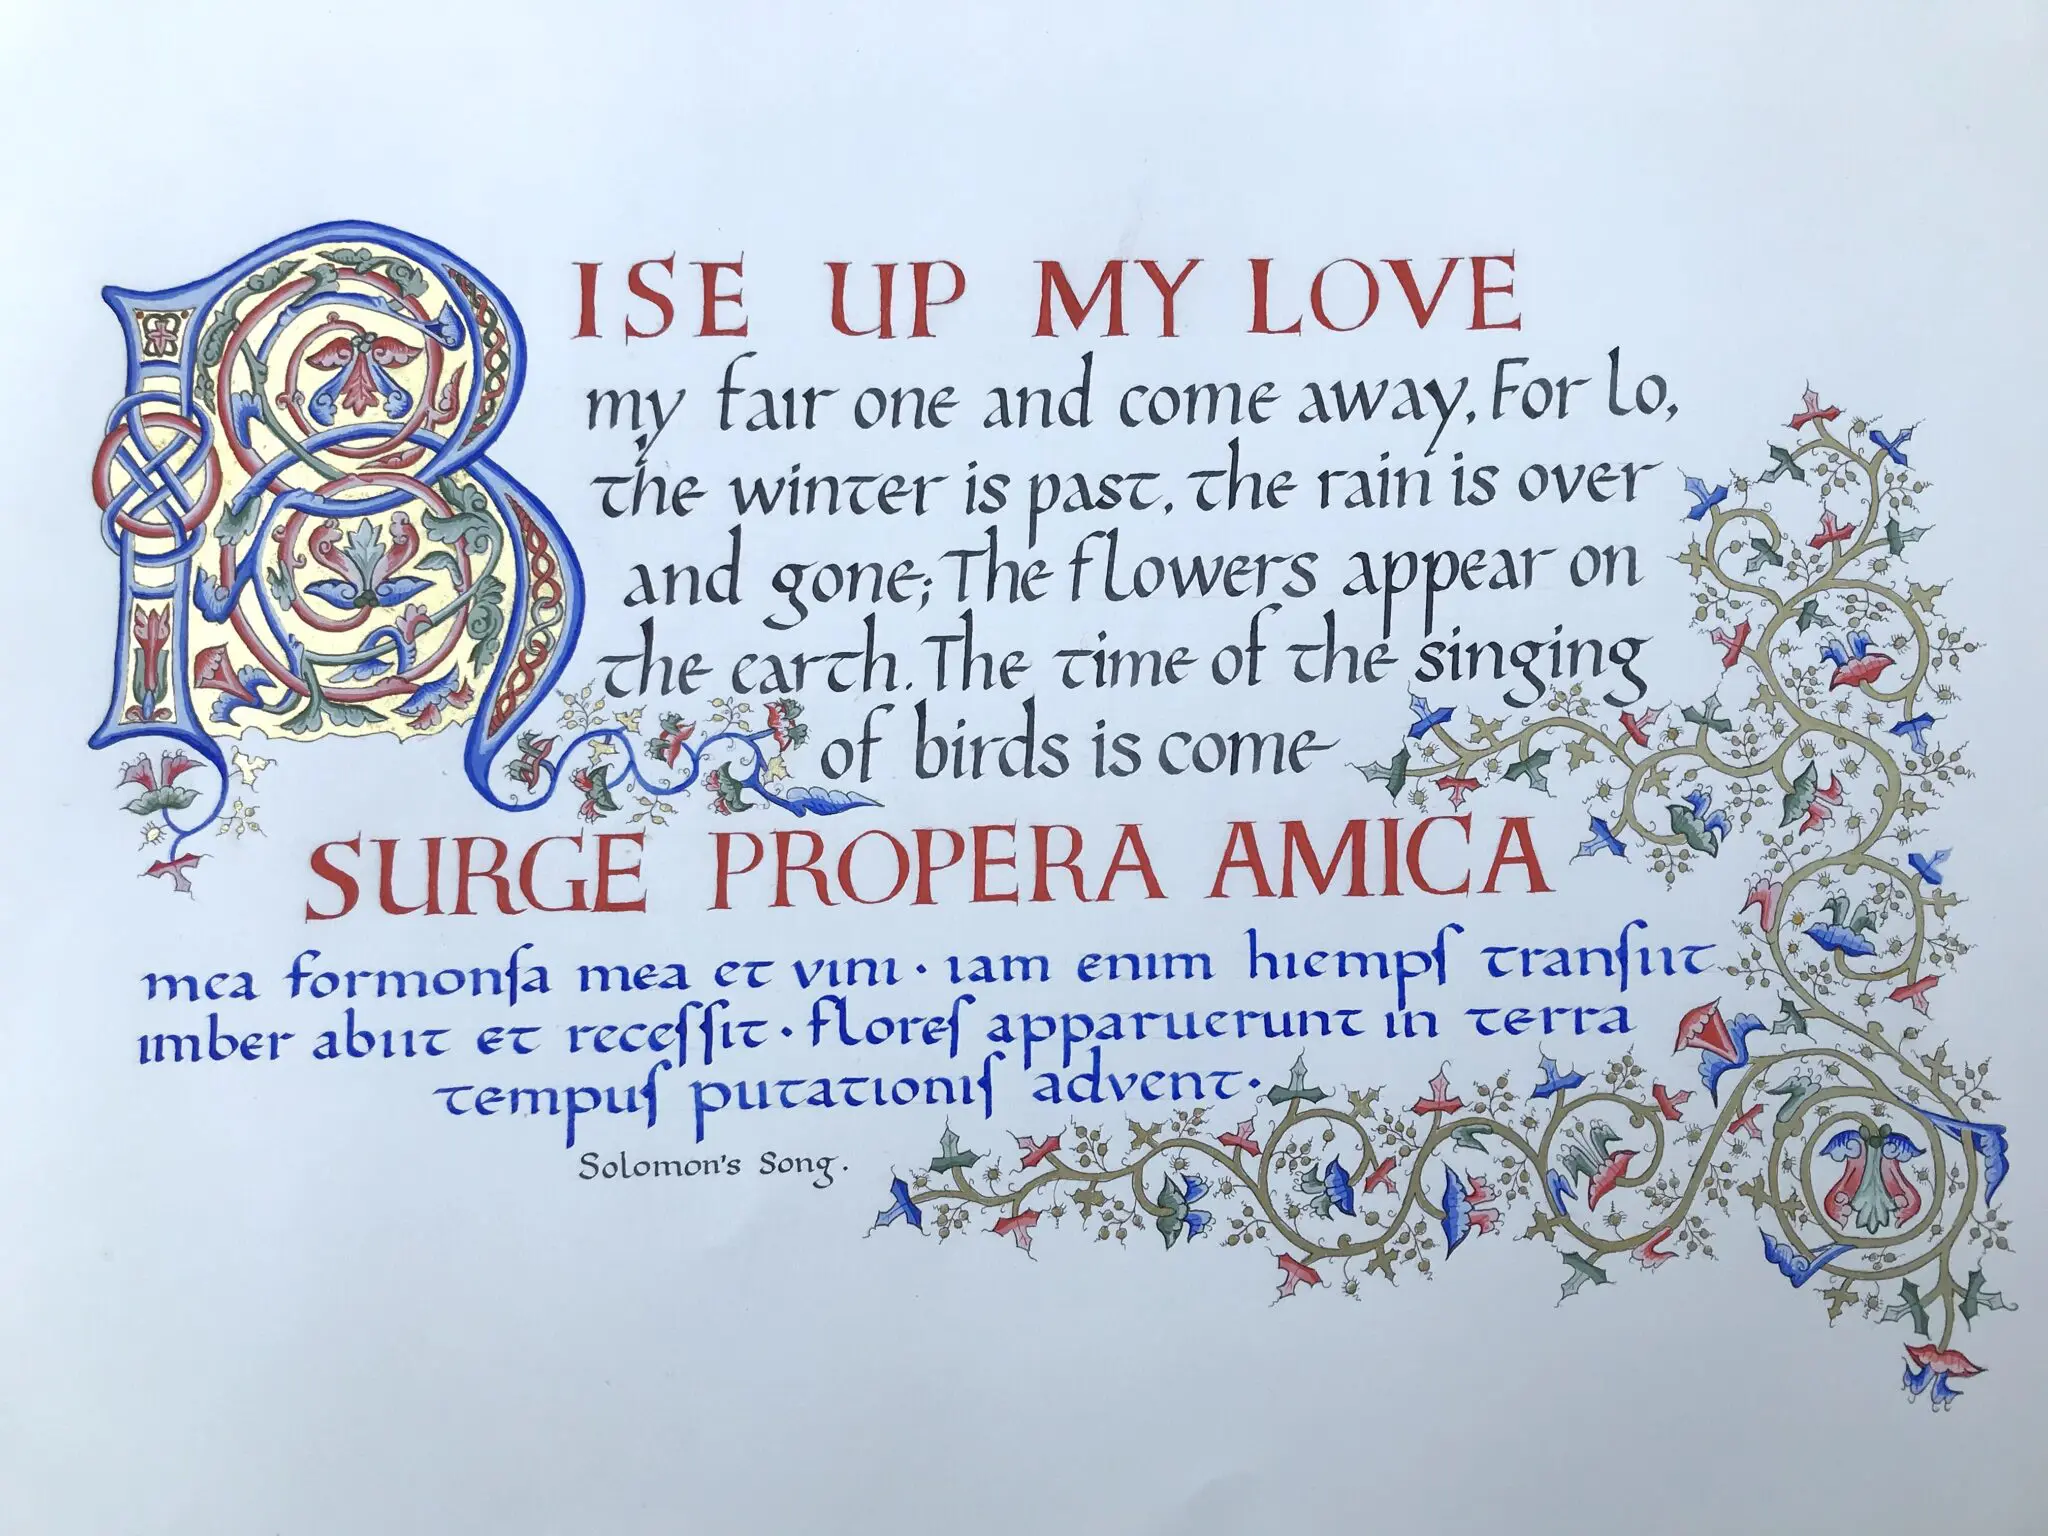 RISE UP MY LOVE
my fair one and come away. For lo,
the winter is past, the rain is over
and gone; The flowers appear on
the earth. The time of the singing
of birds is come
SURGE PROPERA AMICA
mea formonſa mea et vini · iam enim hiempſ tranſiit
imber abiit et receſſit · floreſ apparuerunt in terra
tempuſ putationiſ advent ·
Solomon's Song.